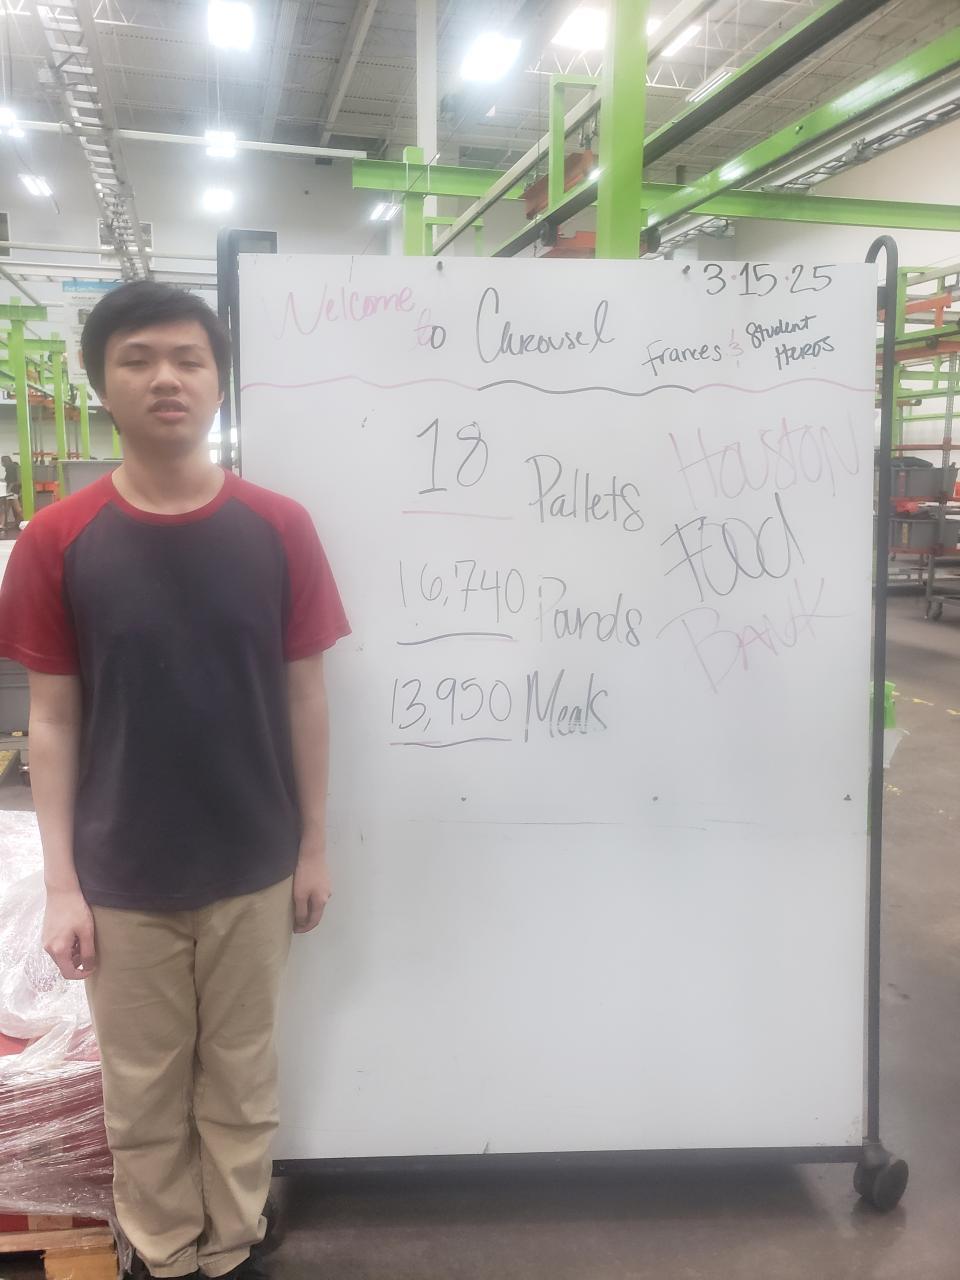 3·15·25
Welcome to Carousel
Frances & Student Heros
18 Pallets
16,740 Pounds
13,950 Meals
Houston
Food
Bank